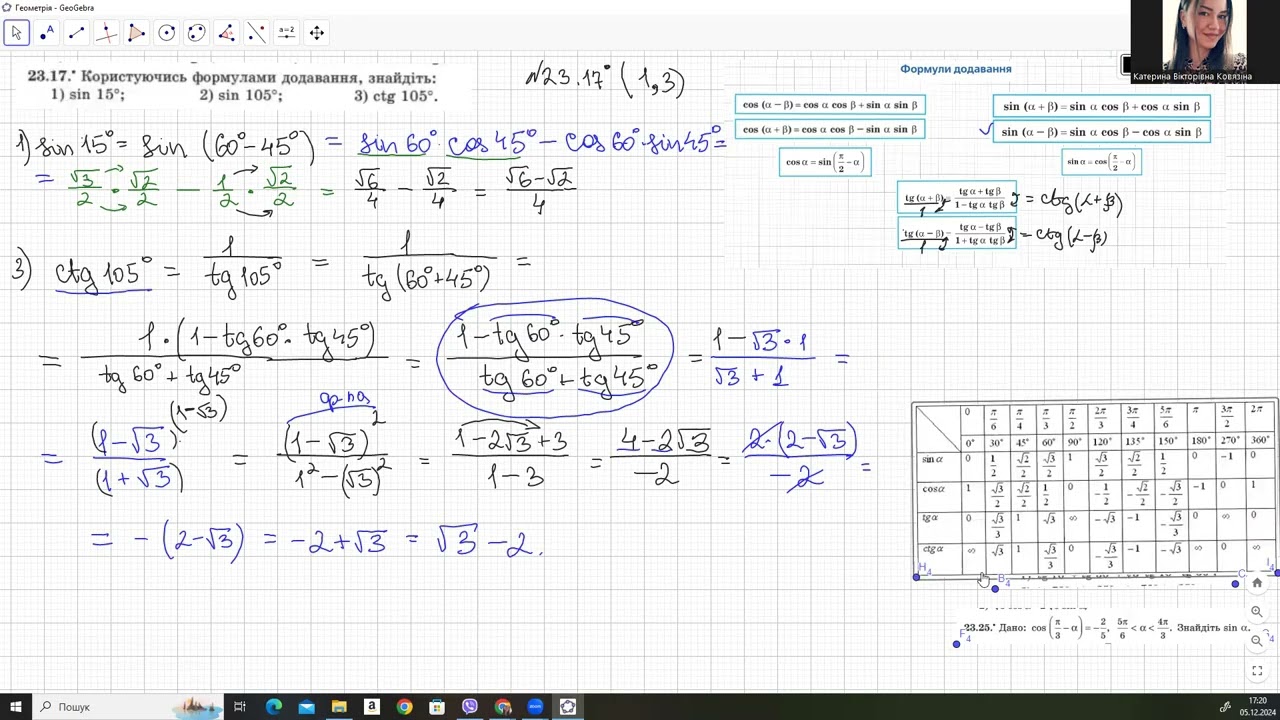 Геометрія - GeoGebra
Катерина Вікторівна Ковязіна
23.17.• Користуючись формулами додавання, знайдіть:
1) sin 15°; 2) sin 105°; 3) ctg 105°.
№23.17° (1,3)
Формули додавання
cos (α − β) = cos α cos β + sin α sin β
cos (α + β) = cos α cos β − sin α sin β
cos α = sin(π/2 − α)
sin (α + β) = sin α cos β + cos α sin β
sin (α − β) = sin α cos β − cos α sin β
sin α = cos(π/2 − α)
tg (α + β) = (tg α + tg β)/(1 − tg α tg β) = ctg(α+β)
tg (α − β) = (tg α − tg β)/(1 + tg α tg β) = ctg(α−β)
1) sin 15° = sin (60° − 45°) = sin 60° · cos 45° − cos 60° · sin 45° =
= √3/2 · √2/2 − 1/2 · √2/2 = √6/4 − √2/4 = (√6 − √2)/4
3) ctg 105° = 1/tg 105° = 1/tg (60° + 45°) =
= 1 · (1 − tg 60° · tg 45°)/(tg 60° + tg 45°) = (1 − tg 60° · tg 45°)/(tg 60° + tg 45°) = (1 − √3 · 1)/(√3 + 1) =
(1−√3)
ф-ла
= (1 − √3)/(1 + √3) = (1 − √3)²/(1² − (√3)²) = (1 − 2√3 + 3)/(1 − 3) = (4 − 2√3)/−2 = 2 · (2 − √3)/−2 =
= − (2 − √3) = −2 + √3 = √3 − 2.
0 π/6 π/4 π/3 π/2 2π/3 3π/4 5π/6 π 3π/2 2π
0° 30° 45° 60° 90° 120° 135° 150° 180° 270° 360°
sin α 0 1/2 √2/2 √3/2 1 √3/2 √2/2 1/2 0 −1 0
cos α 1 √3/2 √2/2 1/2 0 −1/2 −√2/2 −√3/2 −1 0 1
tg α 0 √3/3 1 √3 ∞ −√3 −1 −√3/3 0 ∞ 0
ctg α ∞ √3 1 √3/3 0 −√3/3 −1 −√3 ∞ 0 ∞
H₄ B₄ C I₄
23.25.• Дано: cos (π/3 − α) = −2/5, 5π/6 < α < 4π/3. Знайдіть sin α.
F₄
Пошук
17:20
05.12.2024